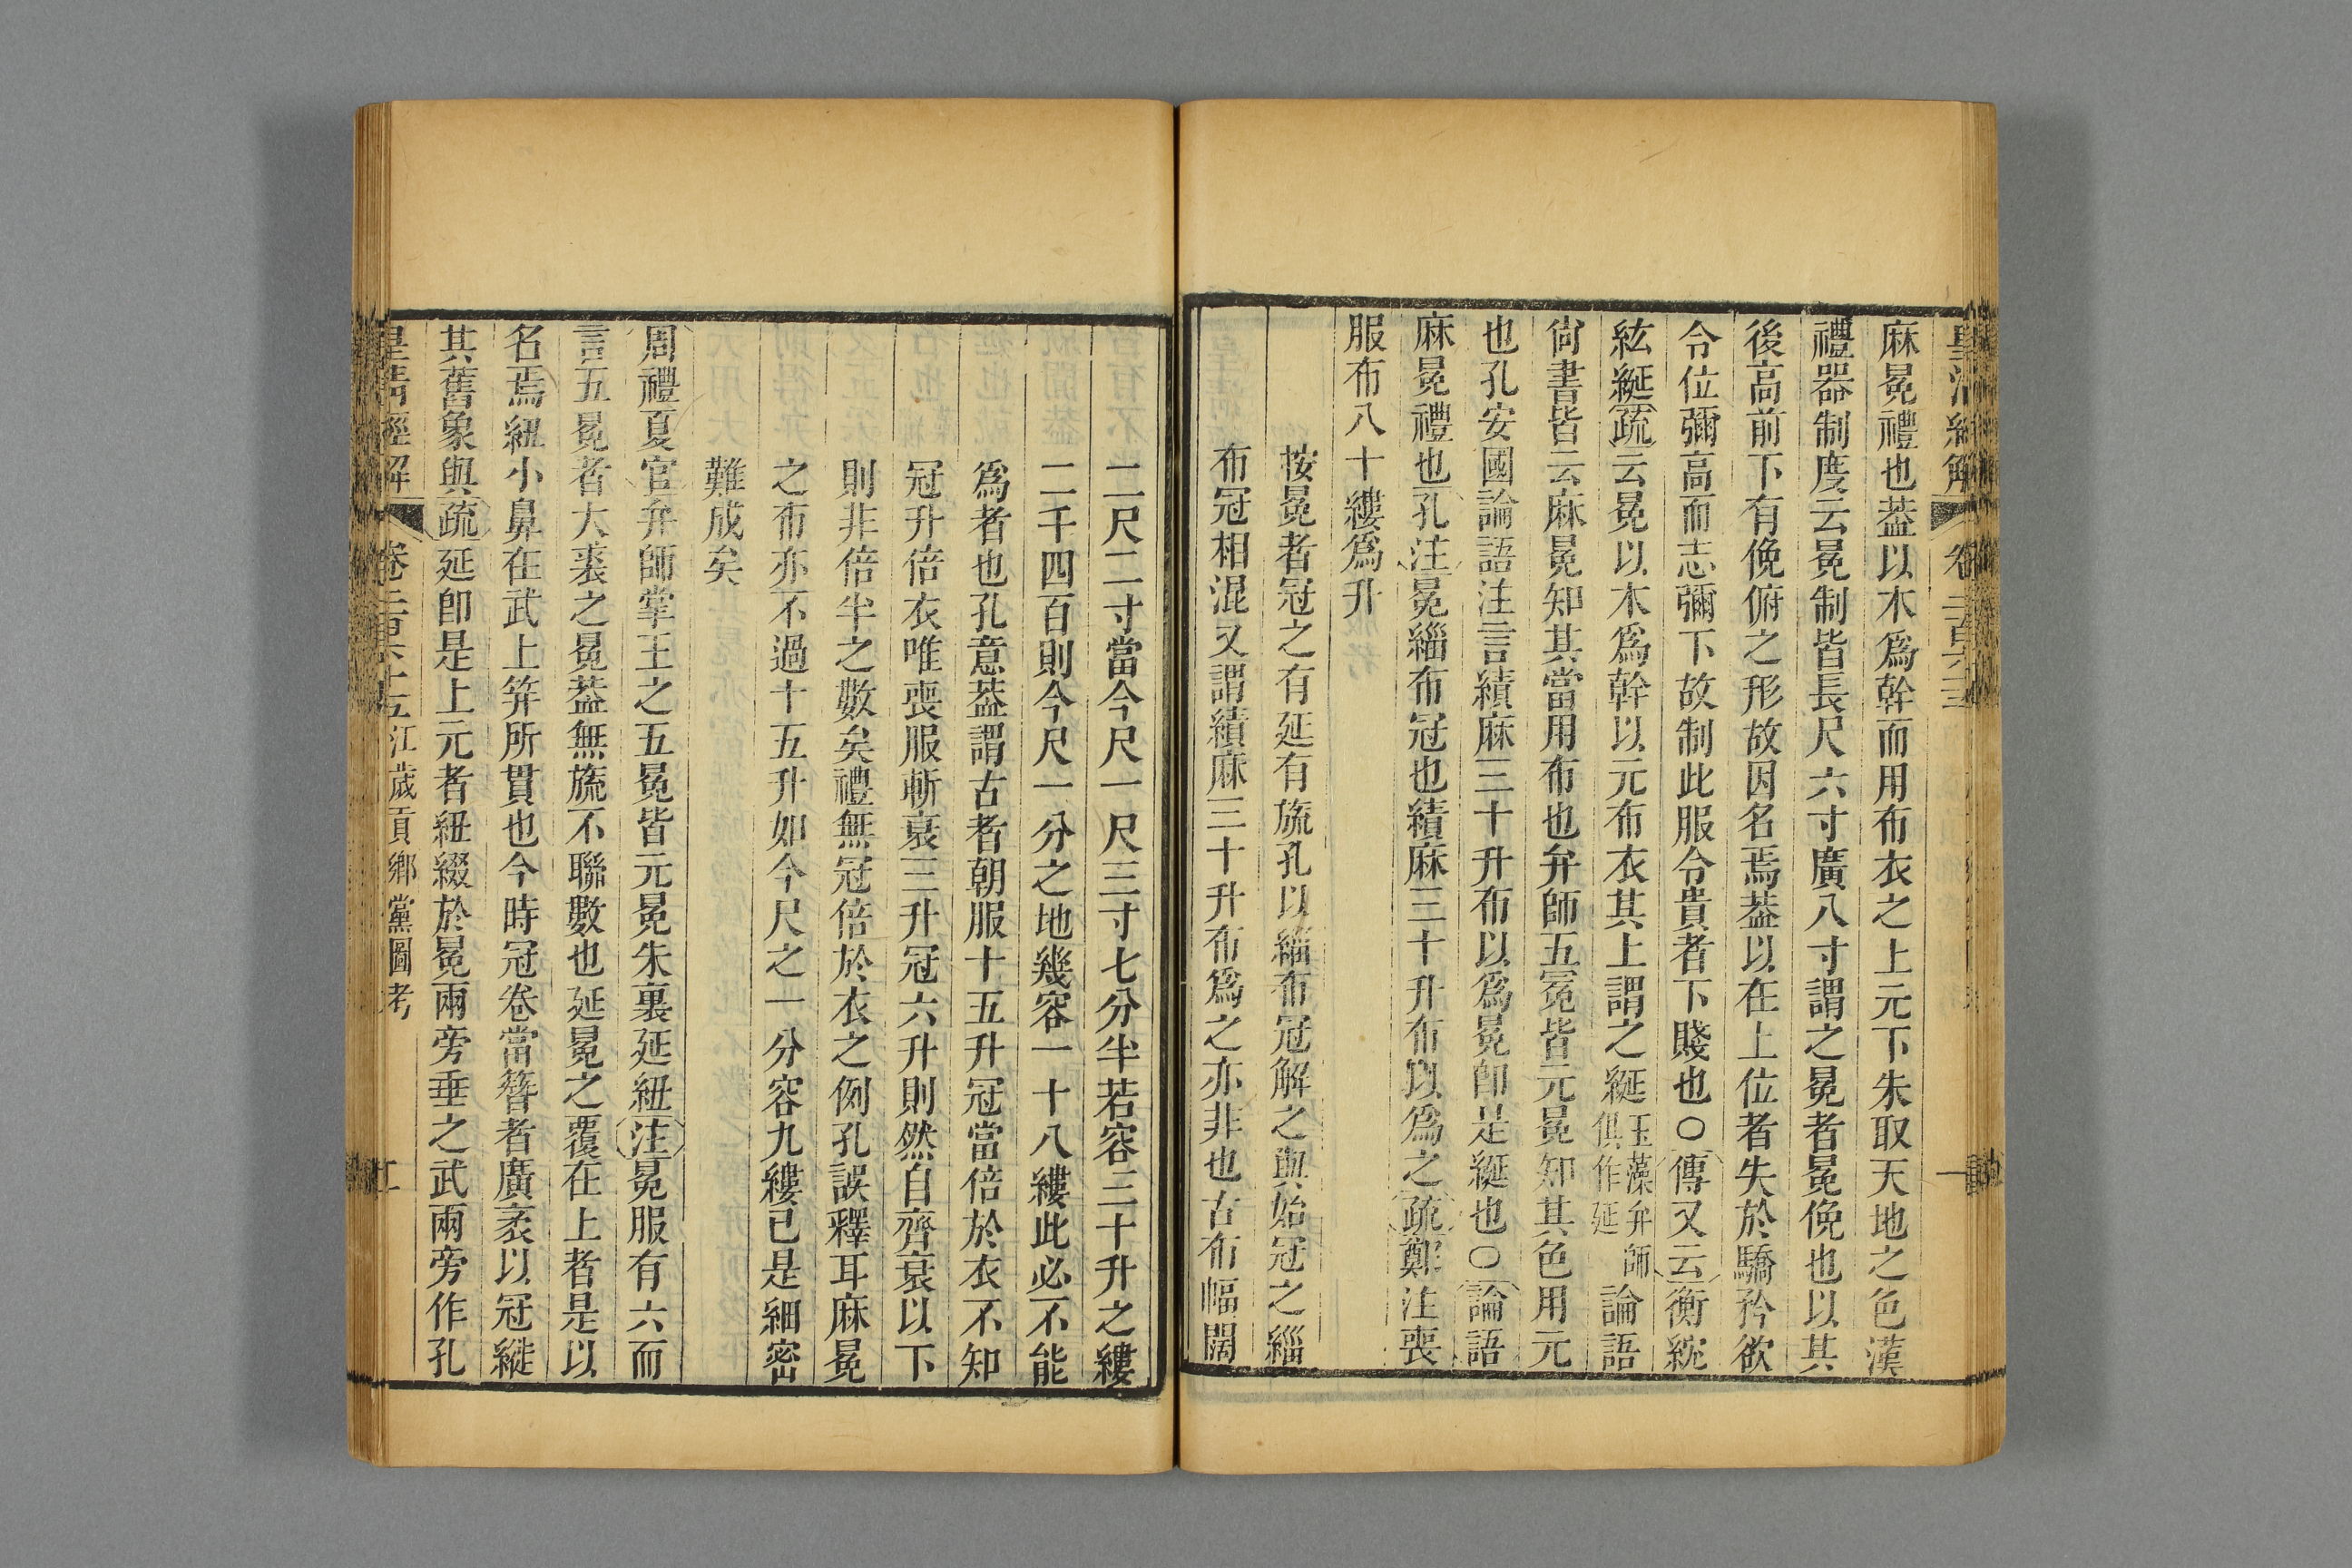 皇清經解 卷二百六十五
麻冕禮也葢以木爲幹而用布衣之上元下朱取天地之色漢
禮器制度云冕制皆長尺六寸廣八寸謂之冕者冕俛也以其
後高前下有俛俯之形故因名焉葢以在上位者失於驕矜欲
令位彌高而志彌下故制此服令貴者下賤也○傳又云衡紞
紘綖疏云冕以木爲幹以元布衣其上謂之綖玉藻弁師俱作延論語
尙書皆云麻冕知其當用布也弁師五冕皆元冕知其色用元
也孔安國論語注言績麻三十升布以爲冕卽是綖也○論語
麻冕禮也孔注冕緇布冠也績麻三十升布以爲之疏鄭注喪
服布八十縷爲升
按冕者冠之有延有旒孔以緇布冠解之與始冠之緇
布冠相混又謂績麻三十升布爲之亦非也古布幅闊
二尺二寸當今尺一尺三寸七分半若容三十升之縷
二千四百則今尺一分之地幾容一十八縷此必不能
爲者也孔意葢謂古者朝服十五升冠當倍於衣不知
冠升倍衣唯喪服斬衰三升冠六升則然自齊衰以下
則非倍半之數矣禮無冠倍於衣之例孔誤釋耳麻冕
之布亦不過十五升如今尺之一分容九縷已是細密
難成矣
周禮夏官弁師掌王之五冕皆元冕朱裏延紐注冕服有六而
言五冕者大裘之冕葢無旒不聯數也延冕之覆在上者是以
名焉紐小鼻在武上笄所貫也今時冠卷當簪者廣袤以冠縰
其舊象與疏延卽是上元者紐綴於冕兩旁垂之武兩旁作孔
皇淸經解 卷二百六十五 江歲貢鄉黨圖考